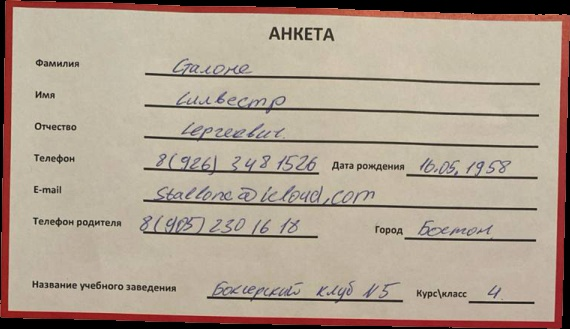 АНКЕТА
Фамилия Сталоне
Имя Силвестр
Отчество Сергеевич.
Телефон 8(926) 348 1526 Дата рождения 16.05.1958
E-mail Stallone@icloud.com
Телефон родителя 8(905) 230 16 18 Город Бостон
Название учебного заведения Боксерский клуб №5 Курс\класс 4.